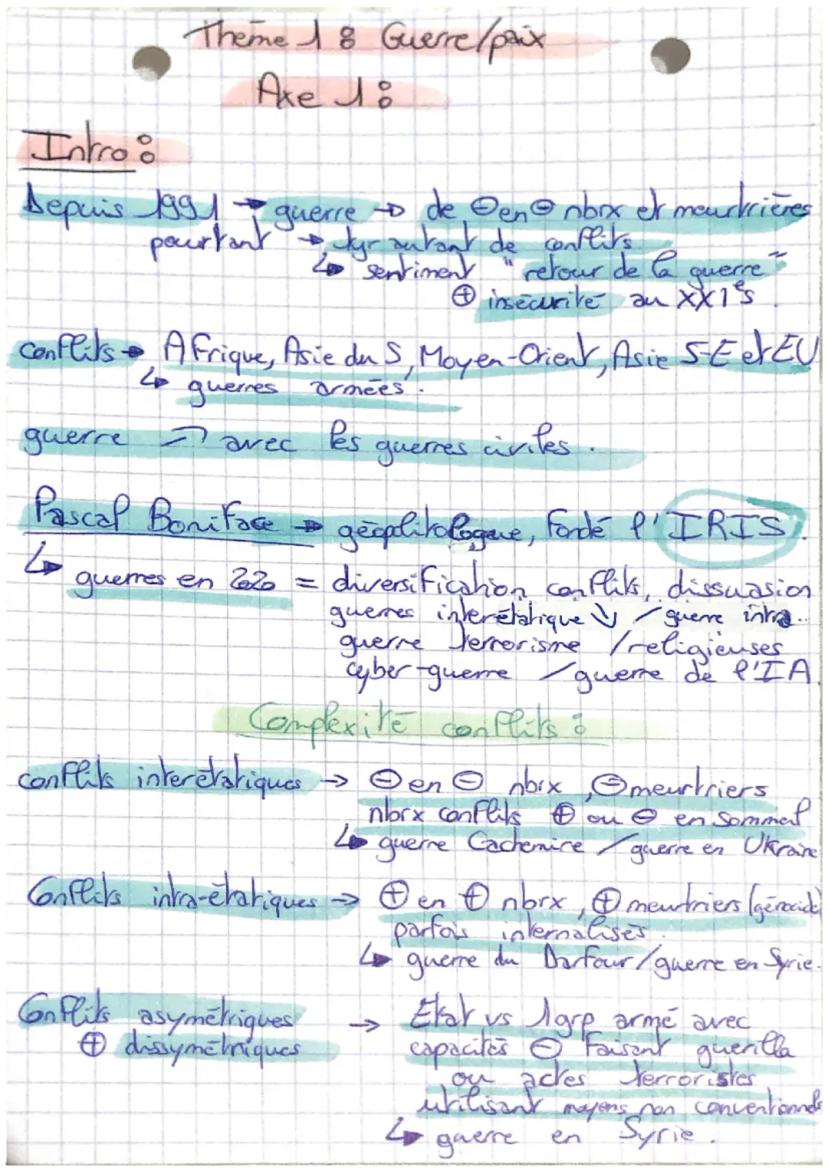 Thème 1 : Guerre/paix
Axe 1 :
Intro :
Depuis 1991 → guerre → de ⊖ en ⊖ nbrx et meurtrières
pourtant → tjr autant de conflits
↳ sentiment "retour de la guerre"
⊕ insécurité au XXIe s
conflits → Afrique, Asie du S, Moyen-Orient, Asie S-E et EU
↳ guerres armées.
guerre ↗ avec les guerres civiles.
Pascal Boniface → géoplitologue, fondé l'IRIS.
↳ guerres en 2020 = diversification conflits, dissuasion
guerres interétatique ↘ / guerre intra..
guerre terrorisme / religieuses
cyber-guerre / guerre de l'IA
Complexité conflits :
conflits interétatiques → ⊖ en ⊖ nbrx, ⊖ meurtriers
nbrx conflits ⊕ ou ⊖ en sommeil
↳ guerre Cachemire / guerre en Ukraine
Conflits intra-étatiques → ⊕ en ⊕ nbrx, ⊕ meurtriers (génocide)
parfois internalisés.
↳ guerre du Darfour / guerre en Syrie.
Conflits asymétriques → Etat vs 1 grp armé avec
⊕ dissymétriques capacités ⊖ faisant guerilla
ou actes terroristes
utilisant moyens non conventionnels
↳ guerre en Syrie.